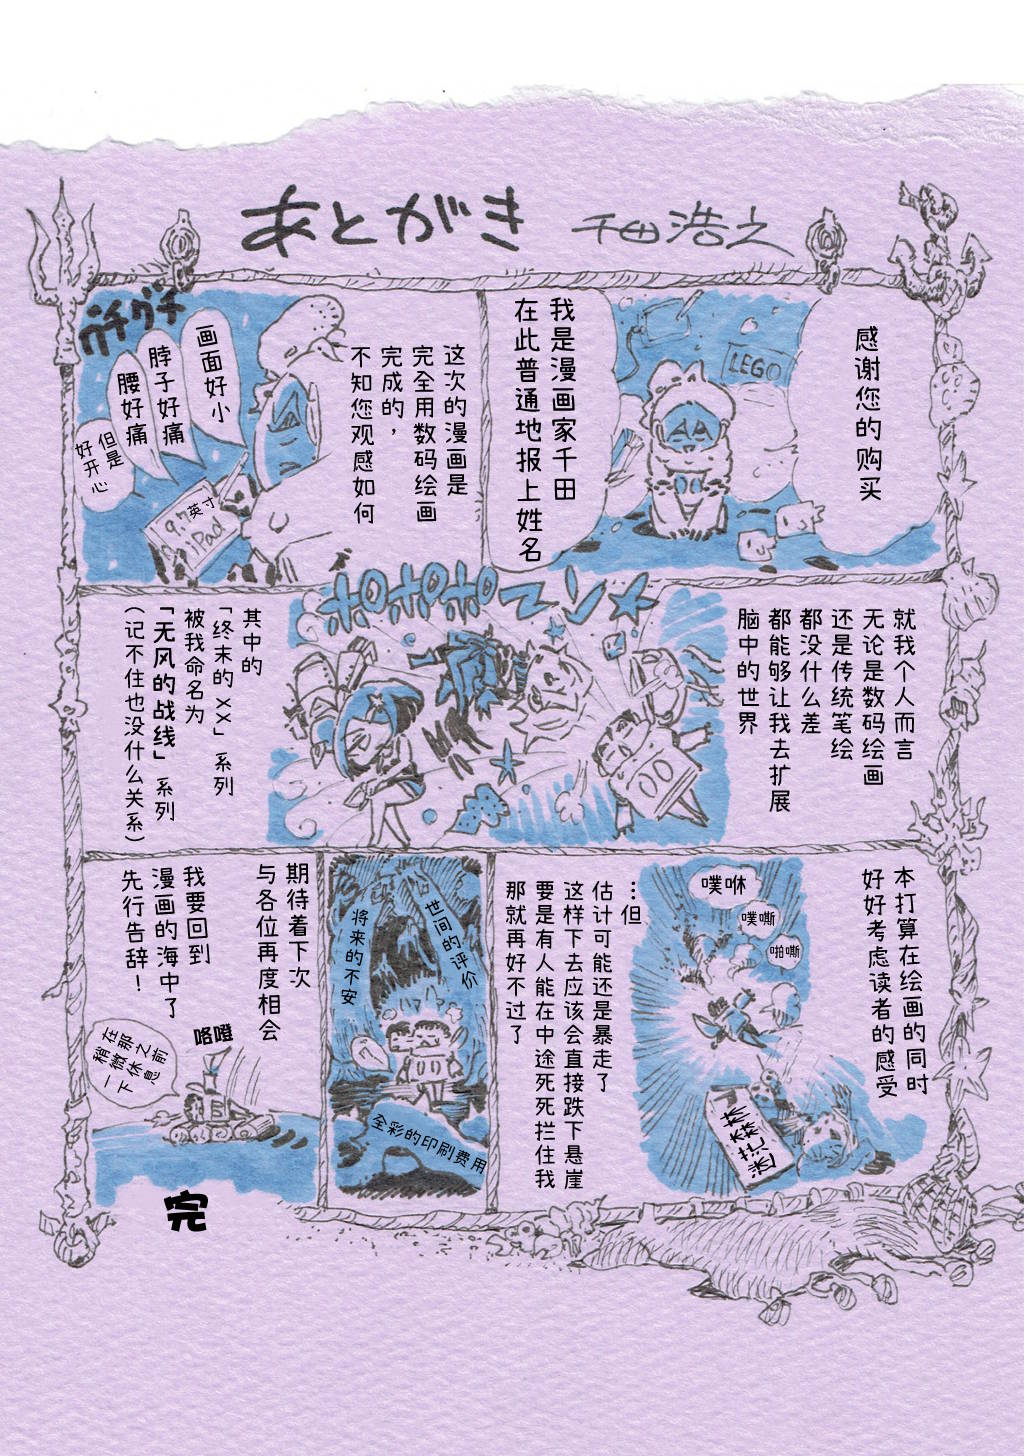 あとがき 千田浩之
感谢您的购买
LEGO
我是漫画家千田
在此普通地报上姓名
这次的漫画是
完全用数码绘画
完成的，
不知您观感如何
グチグチ
画面好小
脖子好痛
腰好痛
但是
好开心
9.7英寸
iPad
就我个人而言
无论是数码绘画
还是传统笔绘
都没什么差
都能够让我去扩展
脑中的世界
ポロポロポロマン★
其中的
「终末的XX」系列
被我命名为
「无风的战线」系列
（记不住也没什么关系）
本打算在绘画的同时
好好考虑读者的感受
噗咻
噗嘶
啪嘶
…但
估计可能还是暴走了
这样下去应该会直接跌下悬崖
要是有人能在中途死死拦住我
那就再好不过了
世间的评价
将来的不安
全彩的印刷费用
期待着下次
与各位再度相会
我要回到
漫画的海中了
先行告辞！
咯噔
在那之前
稍微休息
一下
完